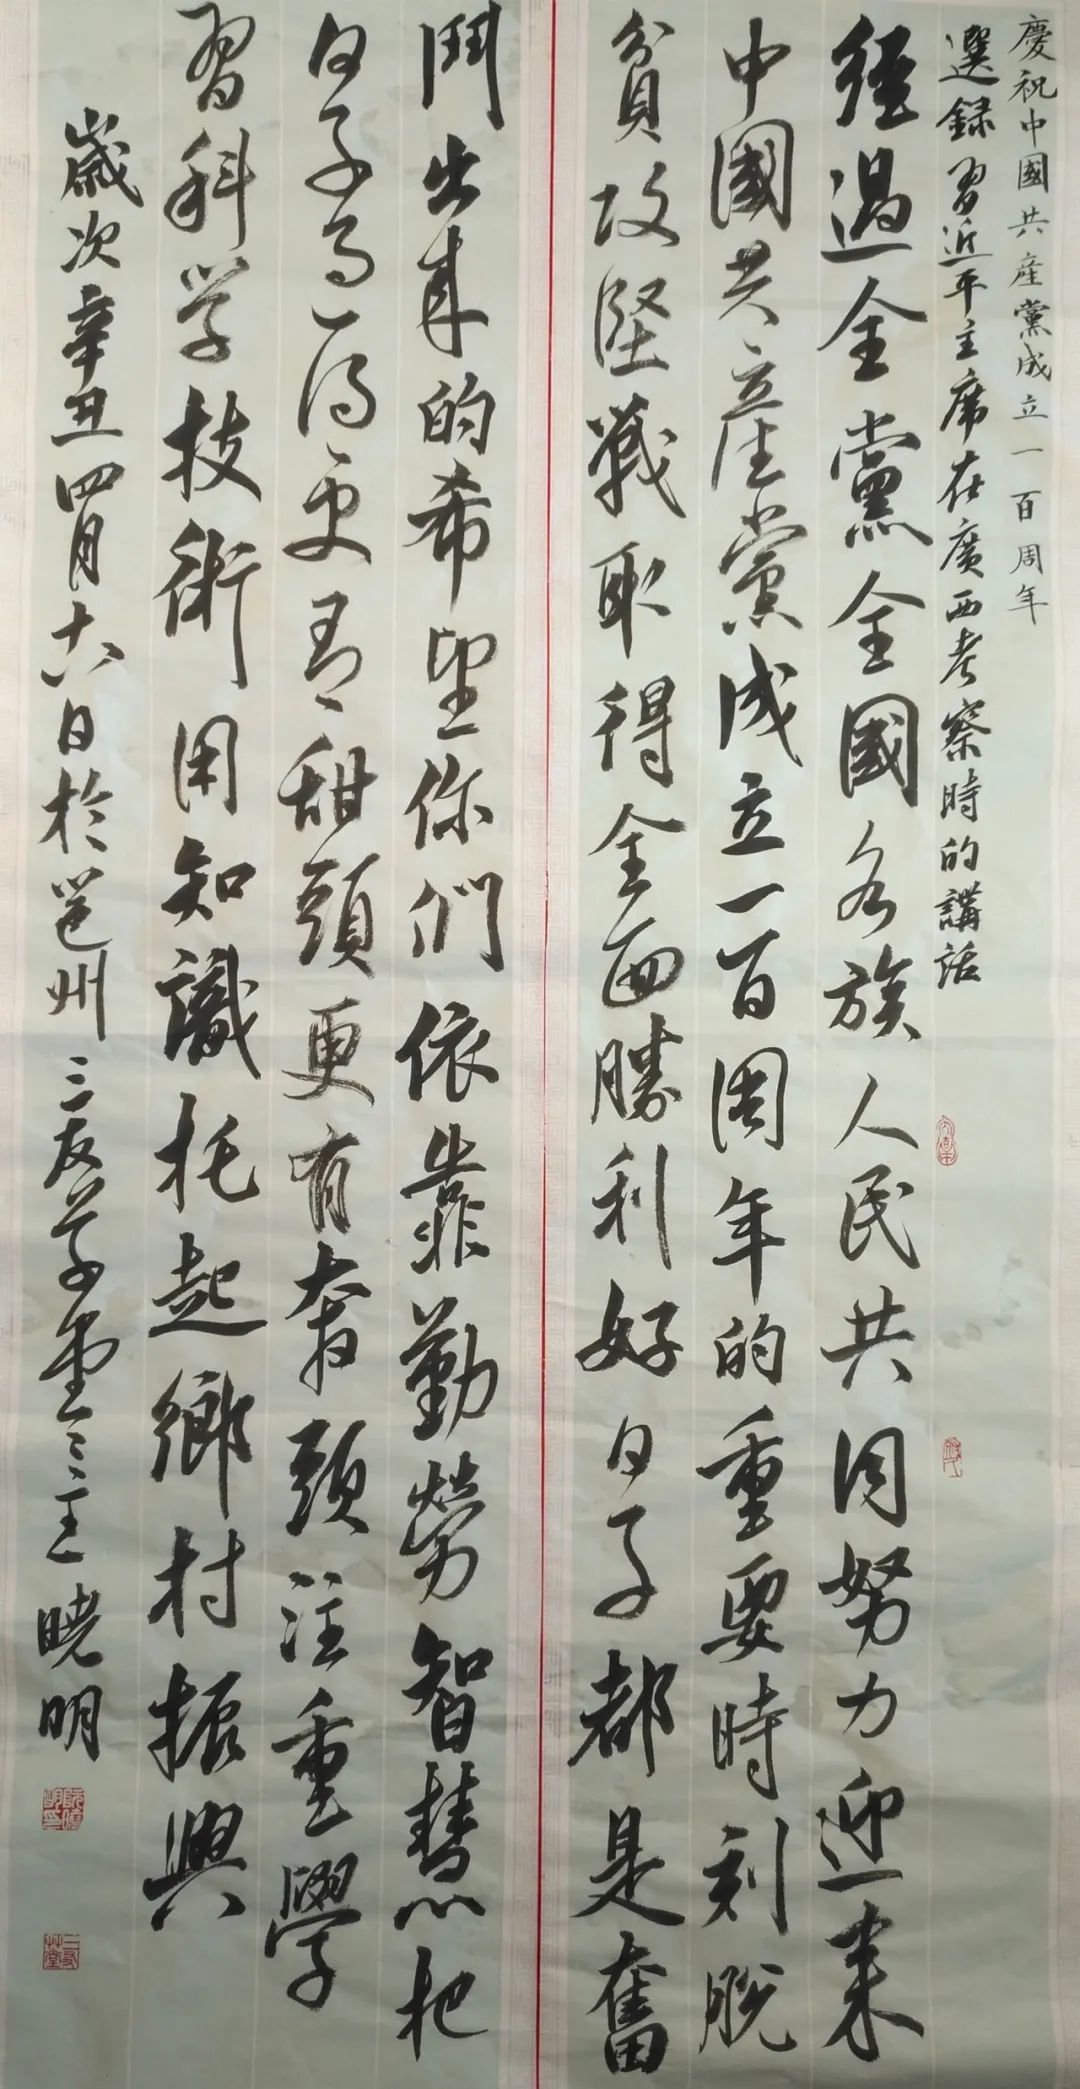 慶祝中國共産黨成立一百周年
選録習近平主席在廣西考察時的講話
經過全黨全國各族人民共同努力迎来
中國共産黨成立一百周年的重要時刻脱
貧攻堅戰取得全面勝利好日子都是奮
鬥出来的希望你們依靠勤勞智慧把
日子过得更有甜頭更有奔頭注重學
習科学技術用知識托起鄉村振興
歲次辛丑四月十六日於邕州三友草堂主曉明